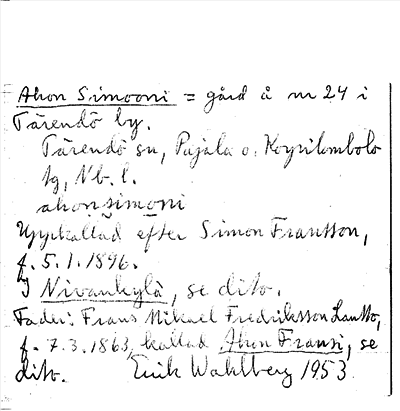 Ahon Simooni = gård å nr 24 i
Tärendö by.
Tärendö sn, Pajala o. Korpilombolo
tg, Nb. l.
ahon simoni
Uppkallad efter Simon Fransson,
f. 5.1.1896.
I Nivankylä, se dito.
Fader: Frans Mikael Fredriksson Lantto,
f. 7.3.1863, kallad Ahon Fransi, se
dito. Erik Wahlberg 1953